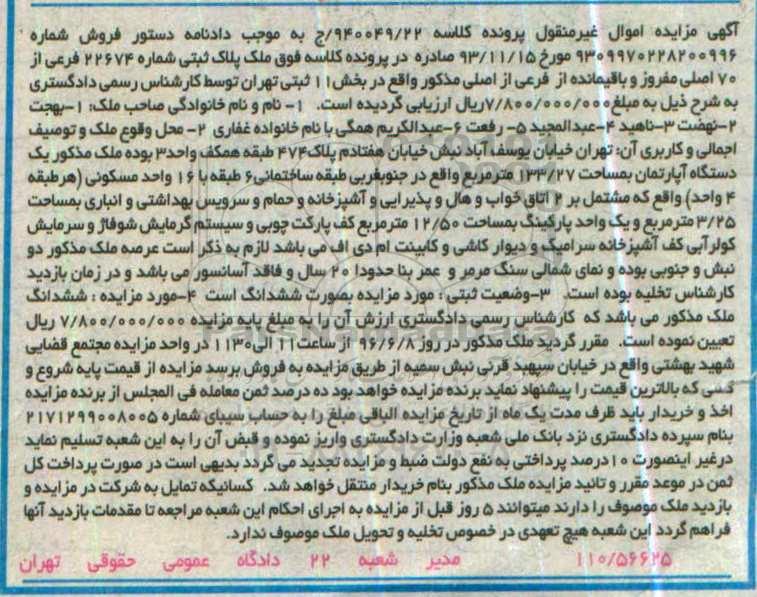 آگهی مزایده اموال غیرمنقول پرونده کلاسه ۹۴۰۰۴۹/۲۲/ج به موجب دادنامه دستور فروش شماره
۹۳۰۹۹۷۰۲۲۸۲۰۰۹۹۶ مورخ ۹۳/۱۱/۱۵ صادره در پرونده کلاسه فوق ملک پلاک ثبتی شماره ۲۲۶۷۴ فرعی از
۷۰ اصلی مفروز و باقیمانده از فرعی از اصلی مذکور واقع در بخش ۱۱ ثبتی تهران توسط کارشناس رسمی دادگستری
به شرح ذیل به مبلغ ۷/۸۰۰/۰۰۰/۰۰۰ریال ارزیابی گردیده است. ۱- نام و نام خانوادگی صاحب ملک: ۱-بهجت
۲-نهضت ۳-ناهید ۴-عبدالمجید ۵- رفعت ۶-عبدالکریم همگی با نام خانواده غفاری ۲- محل وقوع ملک و توصیف
اجمالی و کاربری آن: تهران خیابان یوسف آباد نبش خیابان هفتادم پلاک۴۷۴ طبقه همکف واحد۳ بوده ملک مذکور یک
دستگاه آپارتمان بمساحت ۱۳۳/۲۷ مترمربع واقع در جنوبغربی طبقه ساختمانی۶ طبقه با ۱۶ واحد مسکونی (هرطبقه
۴ واحد) واقع که مشتمل بر ۲ اتاق خواب و هال و پذیرایی و آشپزخانه و حمام و سرویس بهداشتی و انباری بمساحت
۳/۲۵ مترمربع و یک واحد پارکینگ بمساحت ۱۲/۵۰ مترمربع کف پارکت چوبی و سیستم گرمایش شوفاژ و سرمایش
کولرآبی کف آشپزخانه سرامیک و دیوار کاشی و کابینت ام دی اف می باشد لازم به ذکر است عرصه ملک مذکور دو
نبش و جنوبی بوده و نمای شمالی سنگ مرمر و عمر بنا حدودا ۲۰ سال و فاقد آسانسور می باشد و در زمان بازدید
کارشناس تخلیه بوده است. ۳-وضعیت ثبتی : مورد مزایده بصورت ششدانگ است ۴-مورد مزایده : ششدانگ
ملک مذکور می باشد که کارشناس رسمی دادگستری ارزش آن را به مبلغ پایه مزایده ۷/۸۰۰/۰۰۰/۰۰۰ ریال
تعیین نموده است. مقرر گردید ملک مذکور در روز ۹۶/۶/۸ از ساعت۱۱ الی۱۱۳۰ در واحد مزایده مجتمع قضایی
شهید بهشتی واقع در خیابان سپهبد قرنی نبش سمیه از طریق مزایده به فروش برسد مزایده از قیمت پایه شروع و
کسی که بالاترین قیمت را پیشنهاد نماید برنده مزایده خواهد بود ده درصد ثمن معامله فی المجلس از برنده مزایده
اخذ و خریدار باید ظرف مدت یک ماه از تاریخ مزایده الباقی مبلغ را به حساب سیبای شماره ۲۱۷۱۲۹۹۰۰۸۰۰۵
بنام سپرده دادگستری نزد بانک ملی شعبه وزارت دادگستری واریز نموده و قبض آن را به این شعبه تسلیم نماید
درغیر اینصورت ۱۰درصد پرداختی به نفع دولت ضبط و مزایده تجدید می گردد بدیهی است در صورت پرداخت کل
ثمن در موعد مقرر و تائید مزایده ملک مذکور بنام خریدار منتقل خواهد شد. کسانیکه تمایل به شرکت در مزایده و
بازدید ملک موصوف را دارند میتوانند ۵ روز قبل از مزایده به اجرای احکام این شعبه مراجعه تا مقدمات بازدید آنها
فراهم گردد این شعبه هیچ تعهدی در خصوص تخلیه و تحویل ملک موصوف ندارد.
۱۱۰/۵۶۶۲۵ مدیر شعبه ۲۲ دادگاه عمومی حقوقی تهران